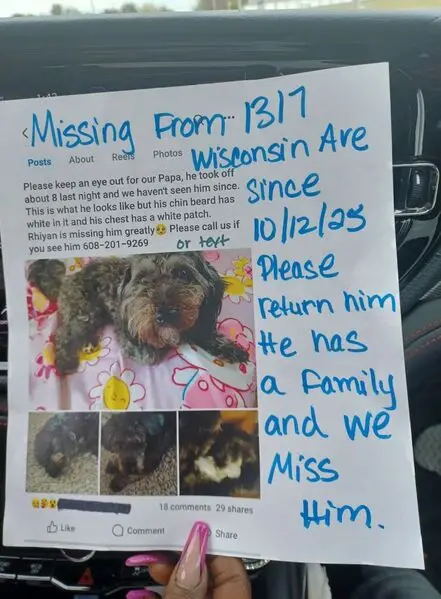 Missing From 1317
Wisconsin Are
since
10/12/25
Please
return him
He has
a family
and we
Miss
Him.
Posts About Reels Photos
Please keep an eye out for our Papa, he took off
about 8 last night and we haven't seen him since.
This is what he looks like but his chin beard has
white in it and his chest has a white patch.
Rhiyan is missing him greatly🥺 Please call us if
you see him 608-201-9269 or text
18 comments 29 shares
Like Comment Share